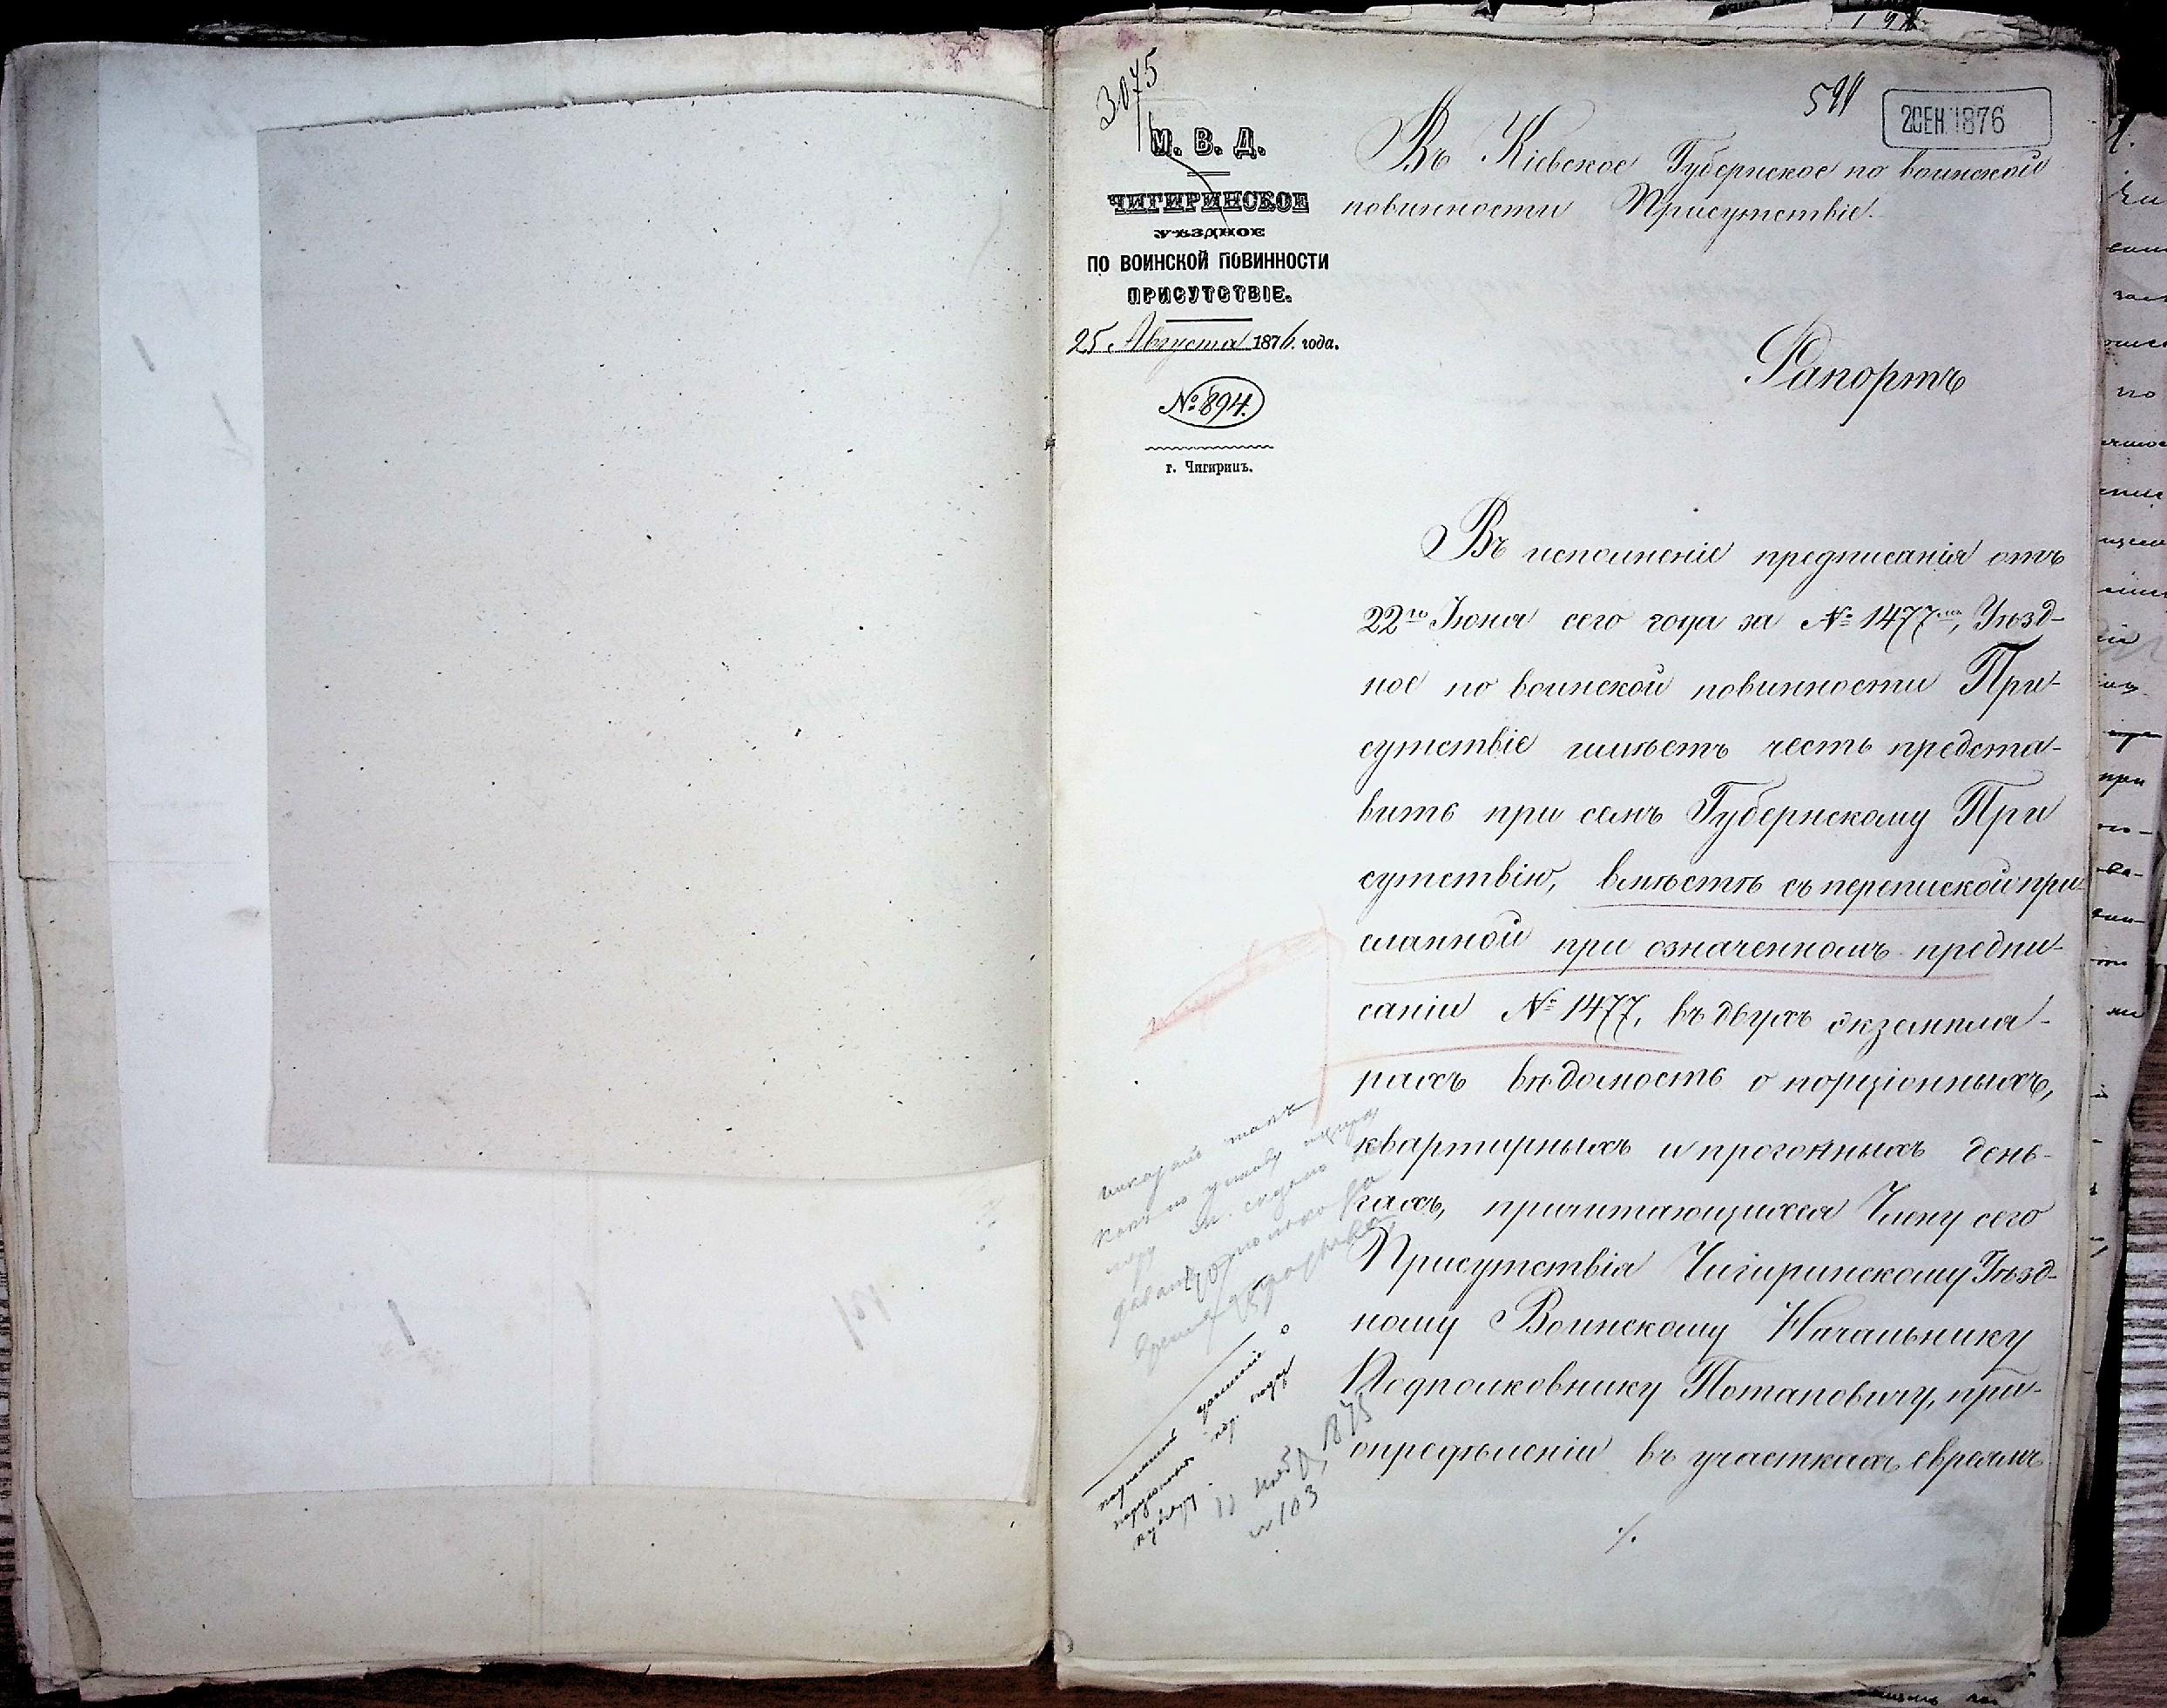 3075
М. В. Д.
ЧИГИРИНСКОЕ
УѢЗДНОЕ
ПО ВОИНСКОЙ ПОВИННОСТИ
ПРИСУТСТВІЕ.
25 Августа 1876. года.
№ 894.
г. Чигиринъ.
2 СЕН. 1876
Въ Кіевское Губернское по воинской
повинности Присутствіе.
Рапортъ
Въ исполненіе предписанія отъ
22го Іюня сего года за № 1477мъ, Уѣзд-
ное по воинской повинности При-
сутствіе имѣетъ честь предста-
вить при семъ Губернскому При
сутствію, вмѣстѣ съ перепиской при-
сланной при означенномъ предпи-
саніи № 1477, въ двухъ экземпля-
рахъ вѣдомость о порціонныхъ,
квартирныхъ и прогонныхъ день-
гахъ, причитающихся Члену сего
Присутствія Чигиринскому Уѣзд-
ному Воинскому Начальнику
Подполковнику Потаповичу, при
опредѣленіи въ участкахъ евреямъ
./.
11 ноябр. 1875
№ 103